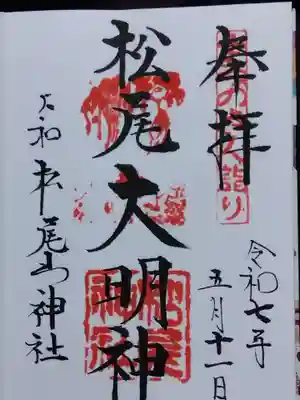 奉拝
令和七年
五月十一日
松尾大明神
大和松尾山神社